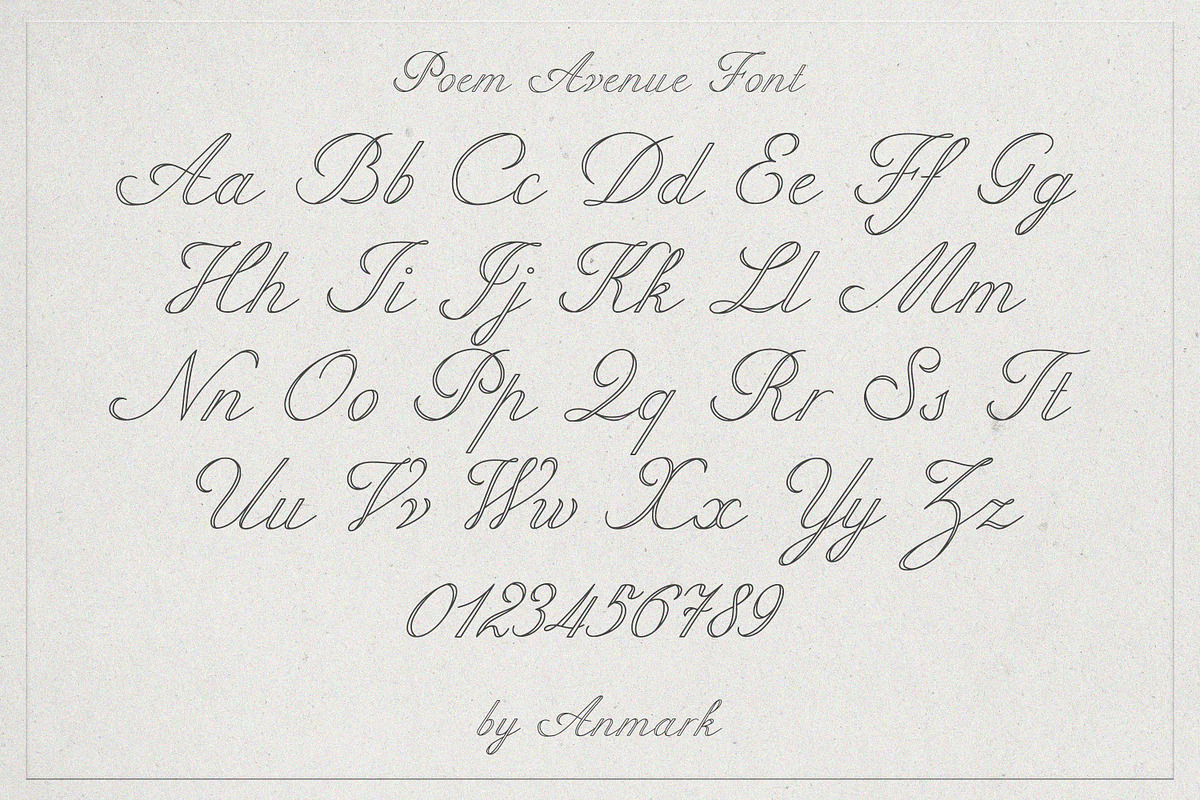 Poem Avenue Font
Aa Bb Cc Dd Ee Ff Gg
Hh Ii Jj Kk Ll Mm
Nn Oo Pp Qq Rr Ss Tt
Uu Vv Ww Xx Yy Zz
0123456789
by Anmark